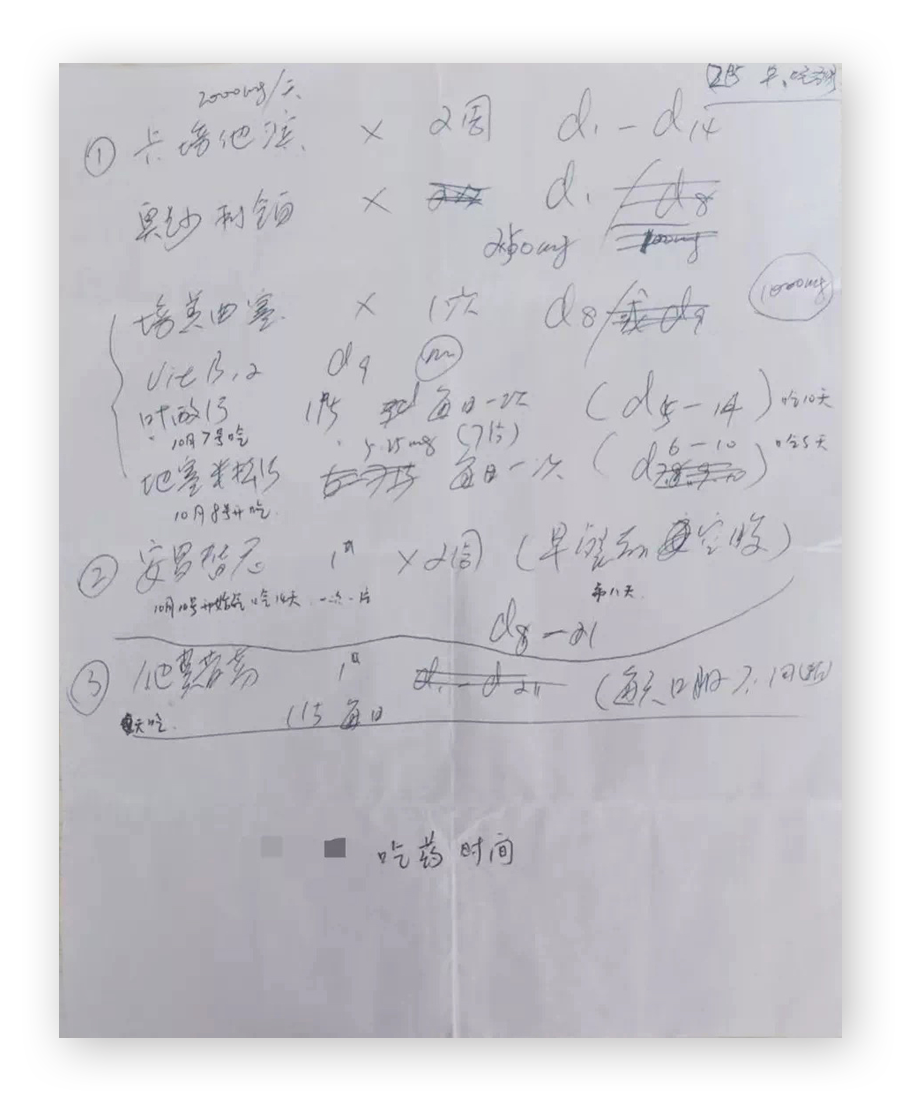 2000mg/天
① 卡培他滨 × 2周 d1-d14
奥沙利铂 × d1
250mg
培美曲塞 × 1次 d8 1000mg
VitB12 d9 im
叶酸片 1片 每日一次 (d5-14) 吃10天
10月7号吃 5.25mg (7片)
地塞米松片 每日一次 (d6-10) 吃5天
10月8号开吃
② 安罗替尼 1# ×2周 (早空腹)
10月10号开始吃 吃14天 一次一片 第八天
d8-21
③ 1# (每天口服不间断)
天吃 1片 每日
吃药时间